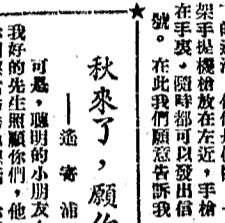 架手提機槍放在左近，手槍
在手裏，隨時都可以發出信
號。在此我們願意告訴我
秋來了，願你
——遙寄浦
可愛，聰明的小朋友
我好的先生照顧你們，他